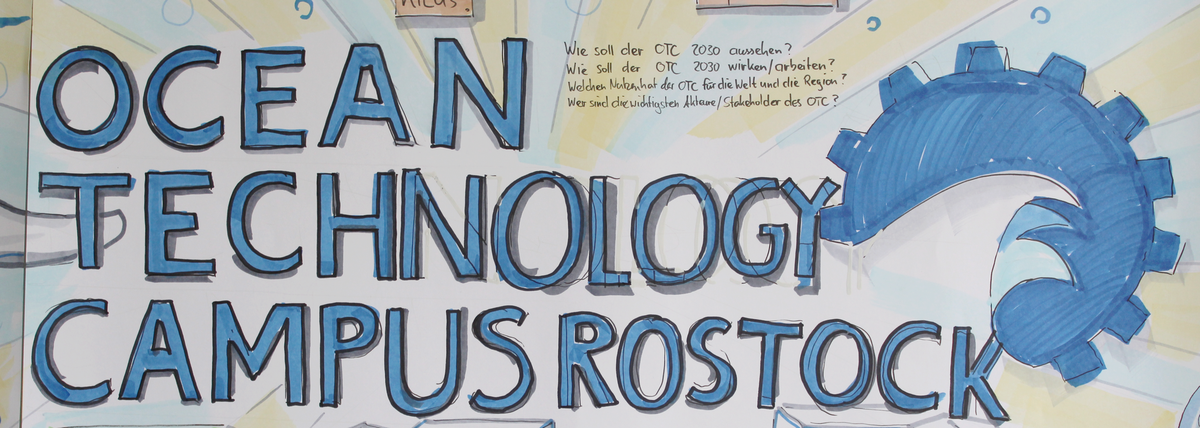 OCEAN
TECHNOLOGY
CAMPUS ROSTOCK
Wie soll der OTC 2030 aussehen?
Wie soll der OTC 2030 wirken/arbeiten?
Welchen Nutzen hat der OTC für die Welt und die Region?
Wer sind die wichtigsten Akteure/Stakeholder des OTC?